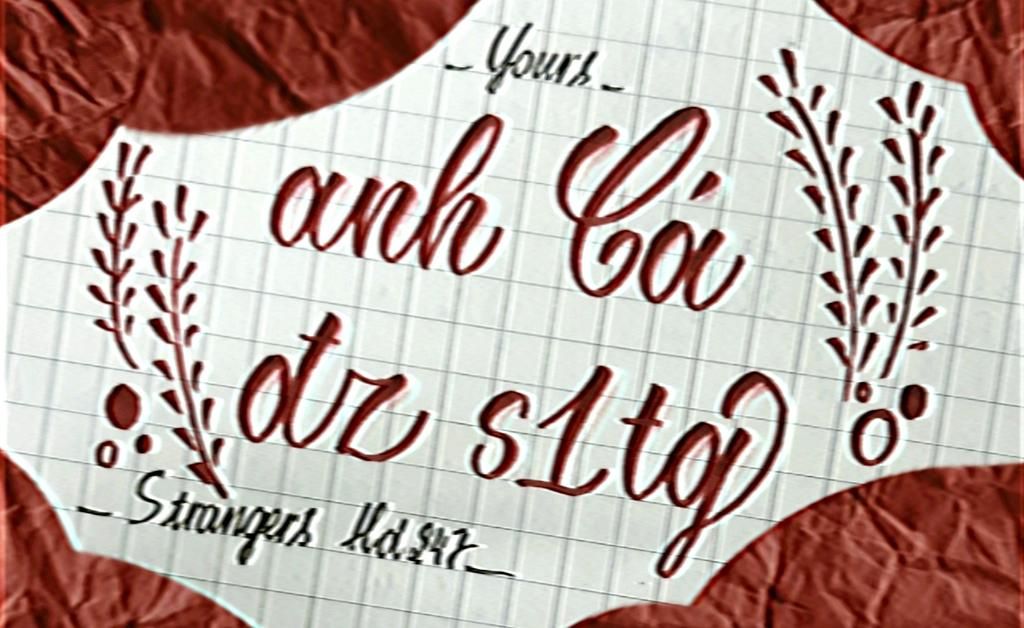 _ Yours _
anh Cá
đz s1tg
_ Strangers Hd 247 _